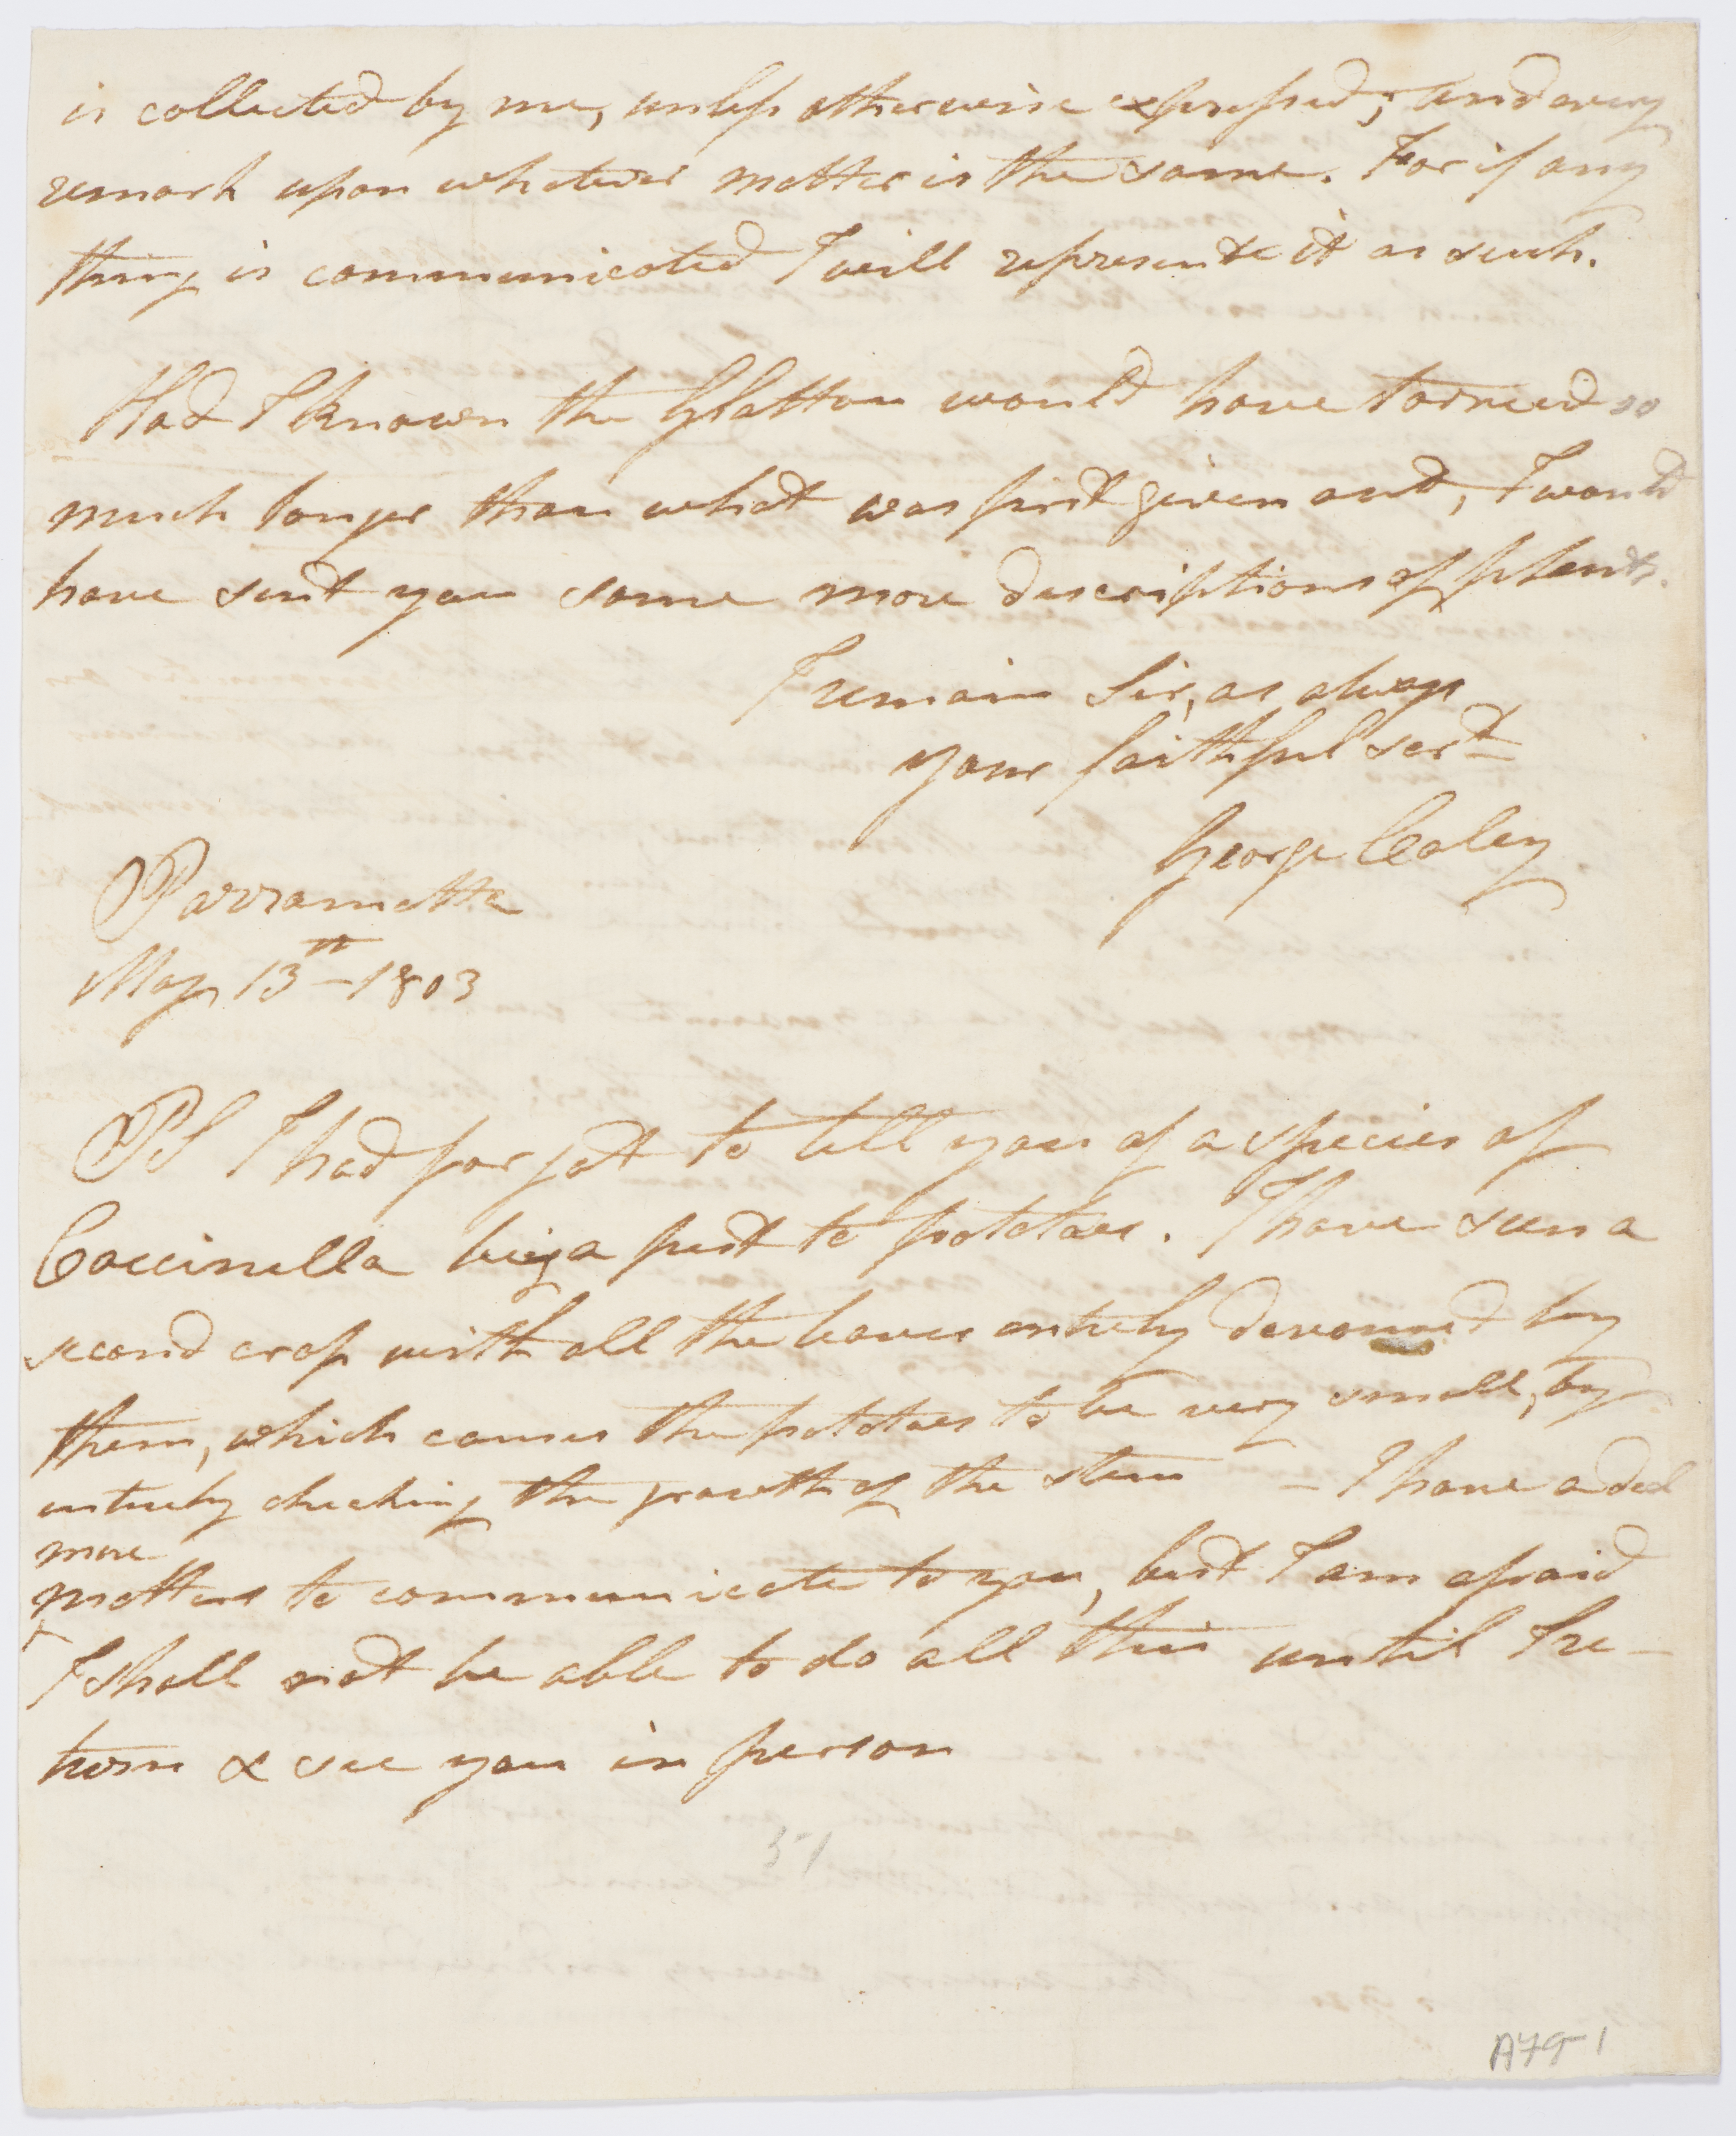 is collected by me, unless otherwise expressed; and every
remark upon whatever matter is the same. For if any
thing is communicated I will represente it as such.
Had I known the Glatton would have tarried so
much longer than what was first given out, I would
have sent you some more descriptions of plants.
I remain Sir, as always
your faithful servt
George Caley
Parramatta
May 13th - 1803
PS I had forgot to tell you of a species of
Coccinella being a pest to potatoes. I have seen a
second crop with all the leaves entirely devoured by
them, which causes the potatoes to be very small, by
entirely checking the growth of the stem - I have a deal
more
matters to communicate to you, but I am afraid
I shall not be able to do all this until I re-
turn & see you in person
51
A79-1